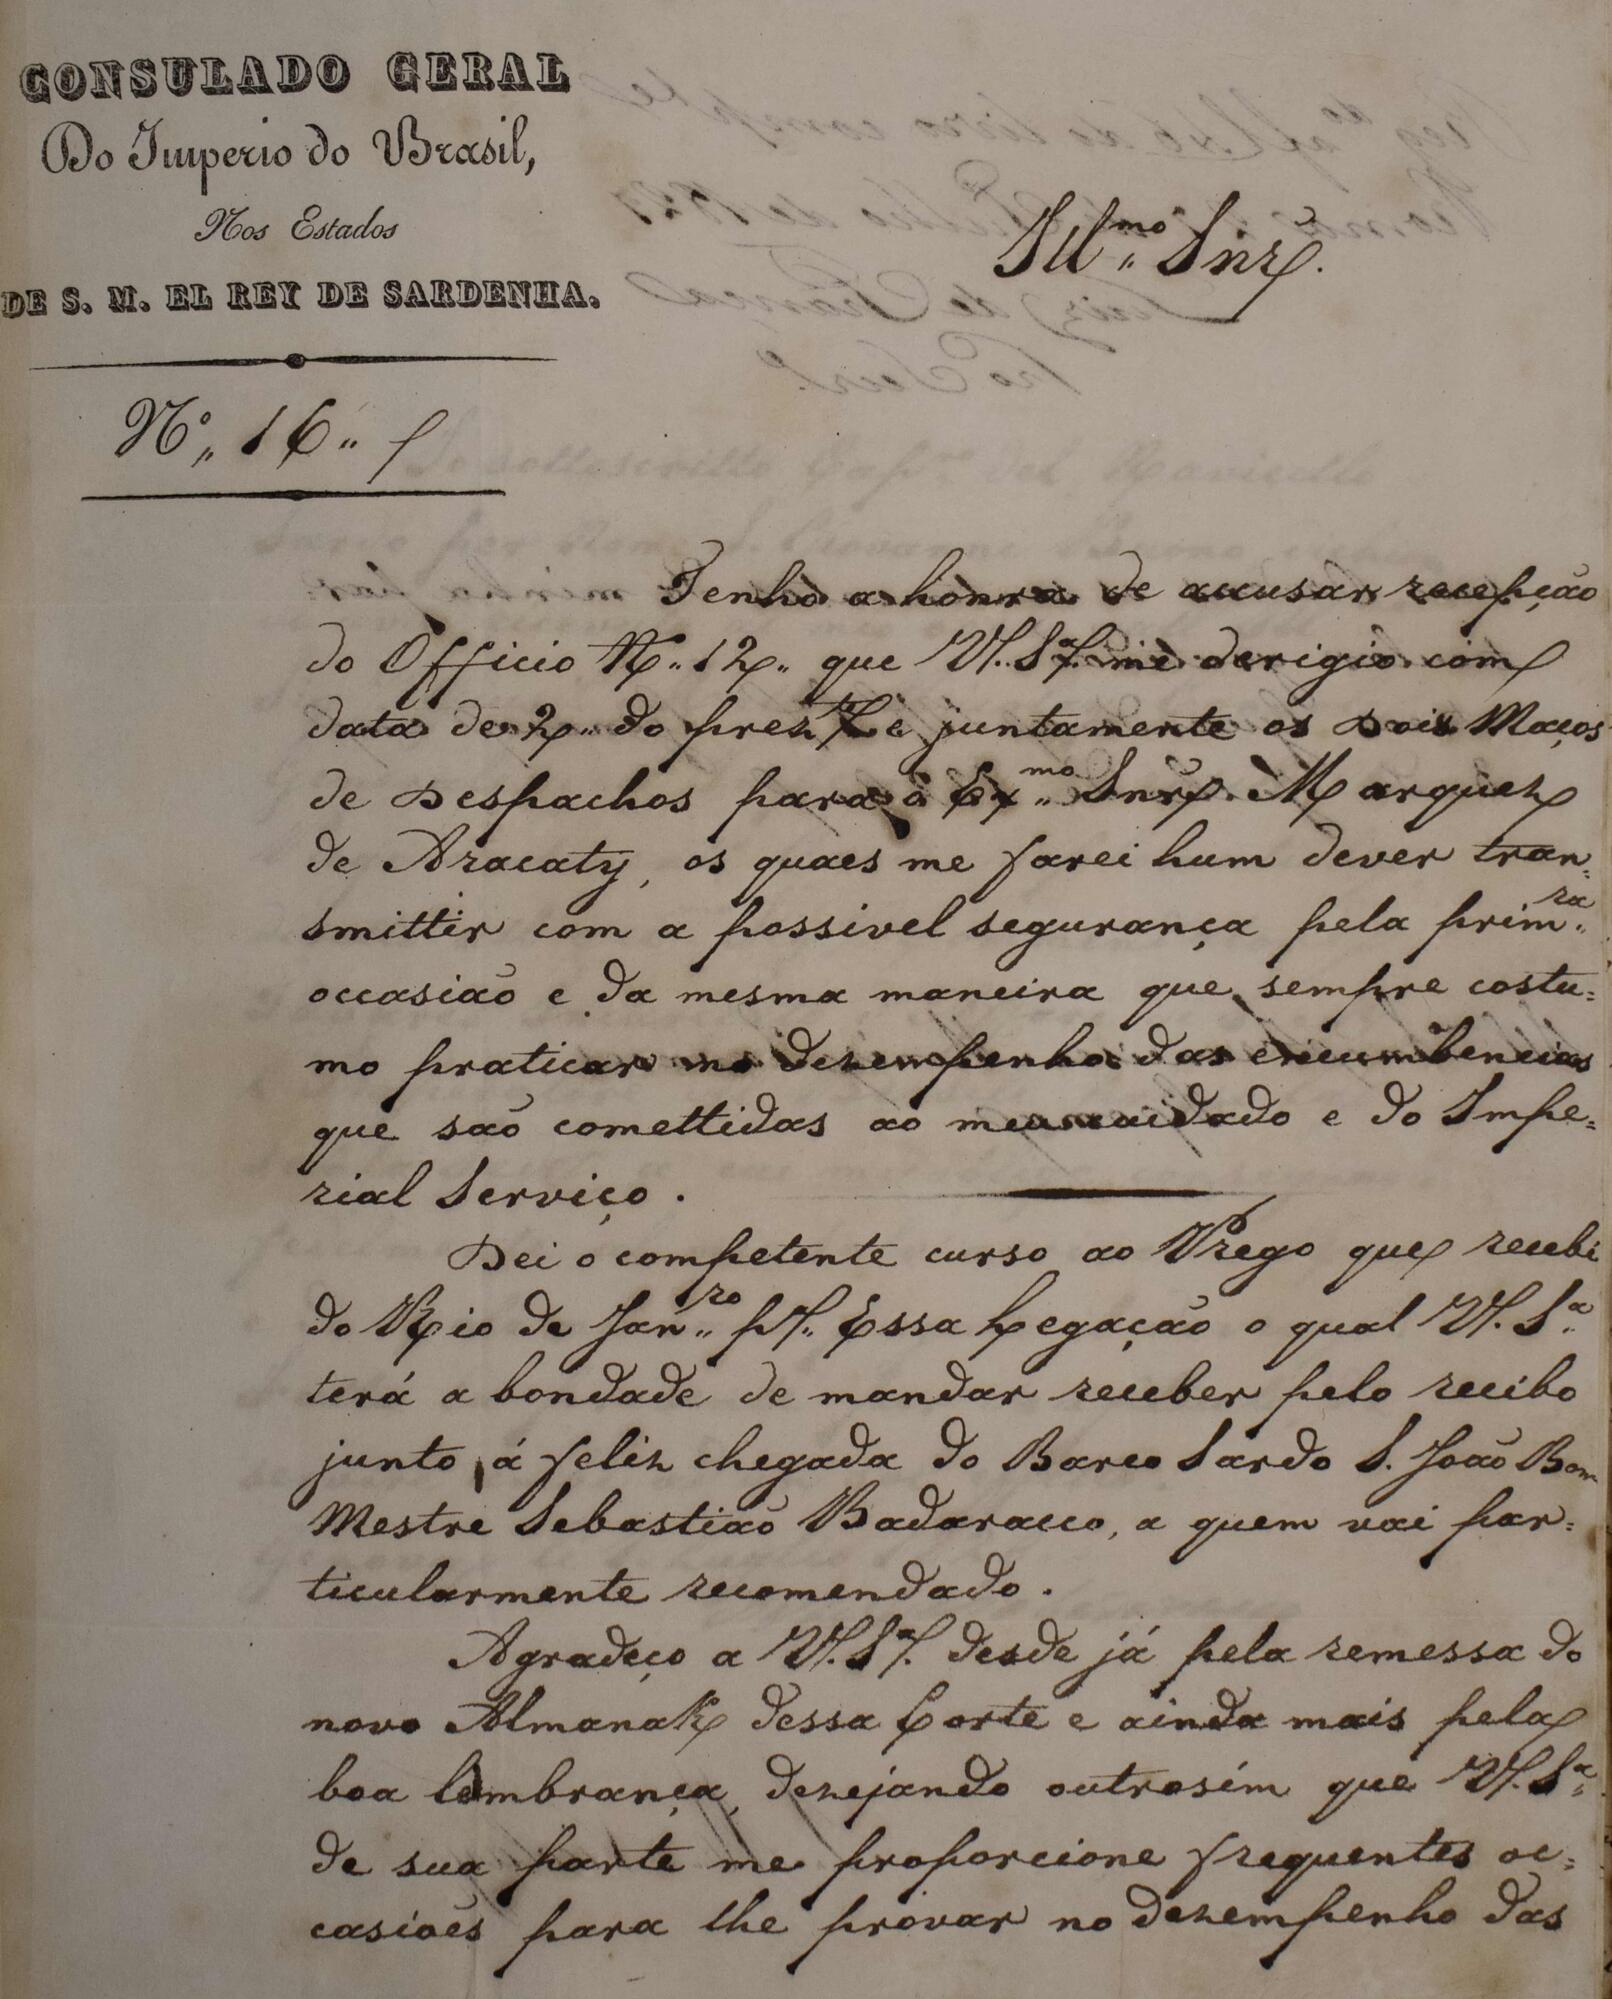 CONSULADO GERAL
Do Imperio do Brasil,
Nos Estados
DE S. M. EL REY DE SARDENHA.
Nº. 16.
Illmo. Snr.
Tenho a honra de accusar recepção
do Officio Nº. 12. que V. Sª. me derigio com
data de 2. do prezte. e juntamente os dois Maços
de Despachos para o Exmo. Snr. Marquez
de Aracaty, os quaes me farei hum dever tran=
smittir com a possivel segurança pela primra.
occasião e da mesma maneira que sempre costu=
mo praticar no dezempenho das encumbencias
que são comettidas ao meu cuidado e do Impe=
rial Serviço.
Dei o competente curso ao Prego que recebi
do Rio de Janro. pª. Essa Legação o qual V. Sª.
terá a bondade de mandar receber pelo recibo
junto, á feliz chegada do Barco Sardo S. João Bom
Mestre Sebastião Badaracco, a quem vai par=
ticularmente recomendado.
Agradeço a V. Sª. desde já pela remessa do
novo Almanak dessa Corte e ainda mais pela
boa lembrança, dezejando outrosim que V. Sª.
de sua parte me proporcione frequentes oc=
casiões para lhe provar no dezempenho das